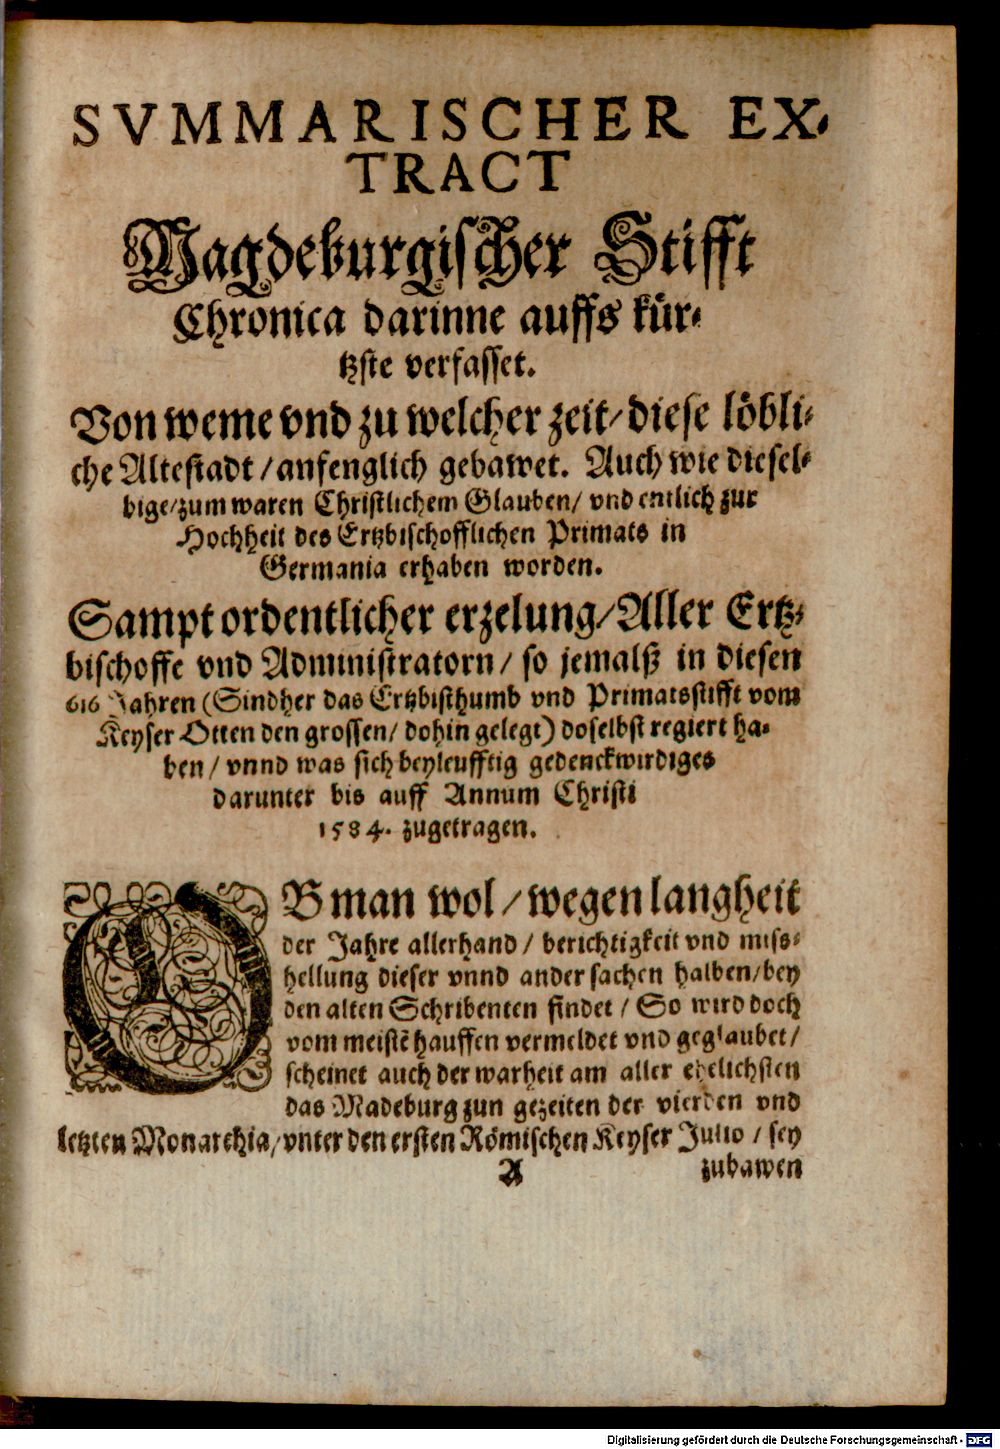 SVMMARISCHER EX-
TRACT
Magdeburgischer Stifft
Chronica darinne auffs kür-
tzste verfasset.
Von weme vnd zu welcher zeit/ diese löbli-
che Altestadt / anfenglich gebawet. Auch wie diesel-
bige/ zum waren Christlichem Glauben/ vnd entlich zur
Hochheit des Ertzbischofflichen Primats in
Germania erhaben worden.
Sampt ordentlicher erzelung/ Aller Ertz-
bischoffe vnd Administratorn/ so jemalß in diesen
616 Jahren (Sindher das Ertzbisthumb vnd Primatsstifft vom
Keyser Otten den grossen/ dohin gelegt) doselbst regiert ha-
ben/ vnnd was sich beyleufftig gedenckwirdiges
darunter bis auff Annum Christi
1584. zugetragen.
OB man wol / wegen langheit
der Jahre allerhand/ berichtigkeit vnd miss-
hellung dieser vnnd ander sachen halben/ bey
den alten Schribenten findet / So wird doch
vom meistẽ hauffen vermeldet vnd geglaubet/
scheinet auch der warheit am aller ehelichsten
das Madeburg zun gezeiten der vierden vnd
letzten Monarchia/ vnter den ersten Römischen Keyser Julio / sey
A zubawen
Digitalisierung gefördert durch die Deutsche Forschungsgemeinschaft - DFG